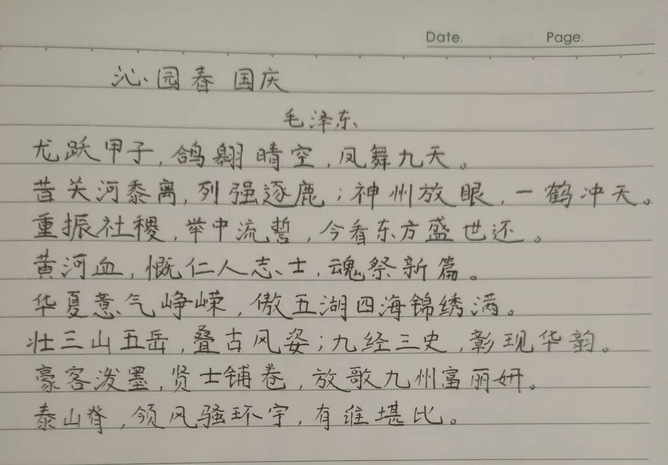 Date. Page.
沁园春 国庆
毛泽东
尤跃甲子，鸽翱晴空，凤舞九天。
昔关河黍离，列强逐鹿；神州放眼，一鹤冲天。
重振社稷，举中流誓，今看东方盛世还。
黄河血，慨仁人志士，魂祭新篇。
华夏意气峥嵘，傲五湖四海锦绣满。
壮三山五岳，叠古风姿；九经三史，彰现华韵。
豪客泼墨，贤士铺卷，放歌九州富丽妍。
泰山脊，领风骚环宇，有谁堪比。